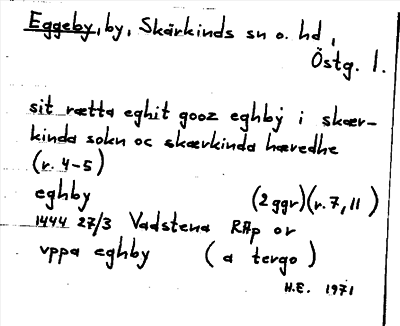 Eggeby, by, Skärkinds sn o. hd,
Östg. l.
sit rætta eghit gooz eghbÿ i skær-
kinda sokn oc skærkinda hæredhe
(r. 4-5)
eghby (2 ggr)(r. 7, 11)
1444 27/3 Vadstena RAp or
vppa eghby (a tergo)
H.E. 1971